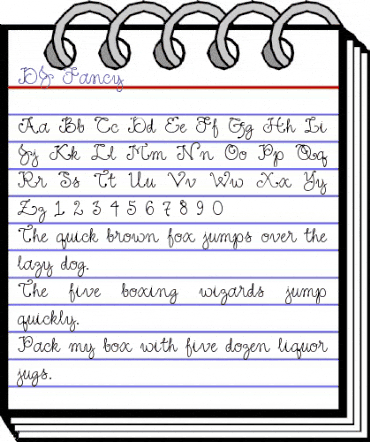 DJ Fancy
Aa Bb Cc Dd Ee Ff Gg Hh Ii
Jj Kk Ll Mm Nn Oo Pp Qq
Rr Ss Tt Uu Vv Ww Xx Yy
Zz 1 2 3 4 5 6 7 8 9 0
The quick brown fox jumps over the
lazy dog.
The five boxing wizards jump
quickly.
Pack my box with five dozen liquor
jugs.